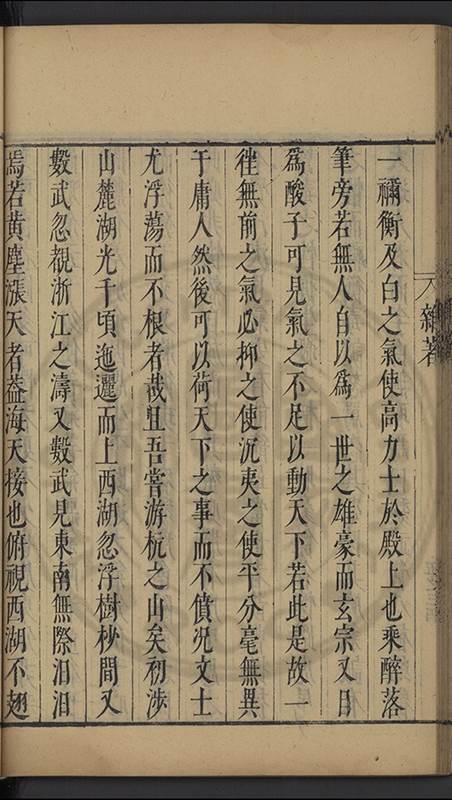 一禰衡及白之氣使高力士於殿上也乘醉落
筆旁若無人自以爲一世之雄豪而玄宗又目
爲酸子可見氣之不足以動天下若此是故一
徃無前之氣必抑之使沉夷之使平分毫無異
于庸人然後可以荷天下之事而不僨况文士
尤浮蕩而不根者哉且吾嘗游杭之山矣初涉
山麓湖光千頃迤邐而上西湖忽浮樹杪間又
數武忽覩浙江之濤又數武見東南無際汨汨
焉若黄塵漲天者葢海天接也俯視西湖不翅
雜著